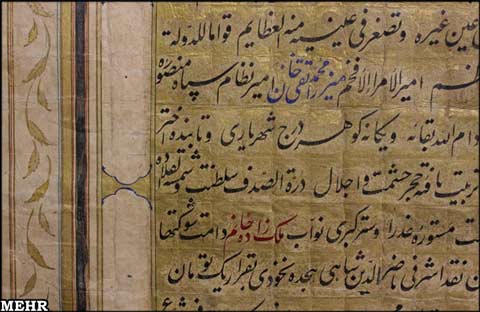 عین غیره و تصغر فی عینه العظایم قواما للدولة
امیر الامراء الافخم میرزا محمد تقی خان امیر نظام سپاه منصوره
دام الله بقائه و یگانه گوهر درج شهریاری و تابنده اختر
تربیت یافته حجر حشمت و اجلال درة الصدف سلطنت و شمسة القلاده
مستوره عذرا و ستر کبری نواب ملک زاده خانم دامت شوکتها
نقد اشرفی ناصر الدین شاهی هجده نخودی بقرار یک تومان
MEHR